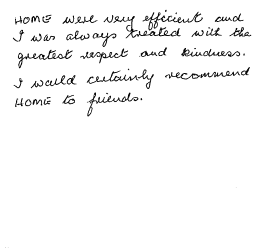 HOME were very efficient and
I was always treated with the
greatest respect and kindness.
I would certainly recommend
HOME to friends.